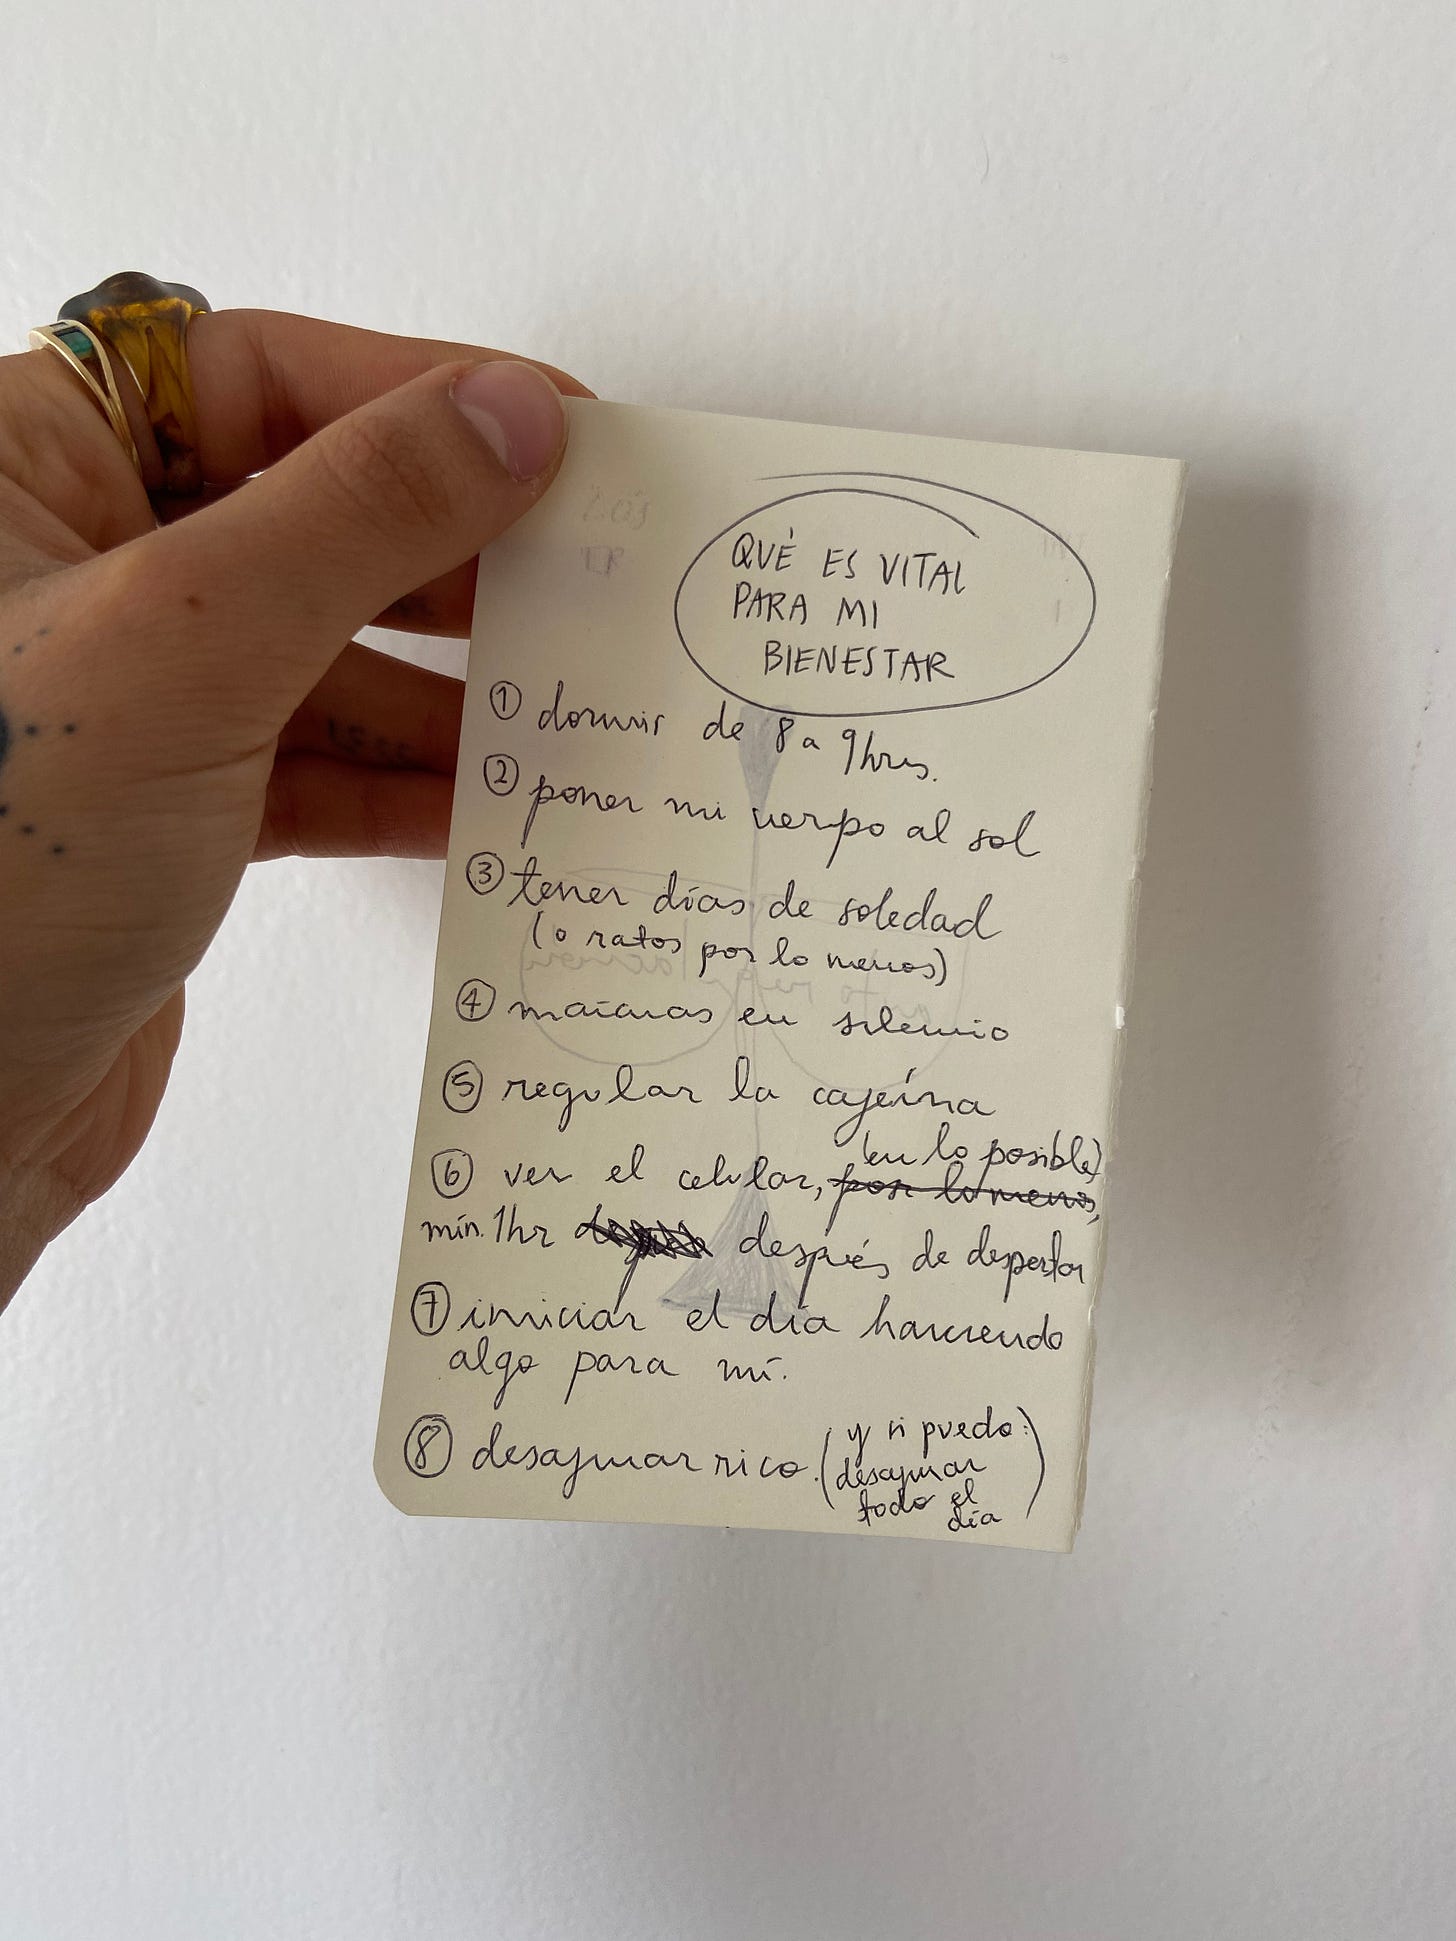 QUÉ ES VITAL
PARA MI
BIENESTAR
① dormir de 8 a 9hrs.
② poner mi cuerpo al sol
③ tener días de soledad
(o ratos por lo menos)
④ mañanas en silencio
⑤ regular la cafeína
(en lo posible)
⑥ ver el celular, por lo menos,
min. 1hr después de despertar
⑦ iniciar el día haciendo
algo para mí.
⑧ desayunar rico. (y si puedo:
desayunar
todo el
día)